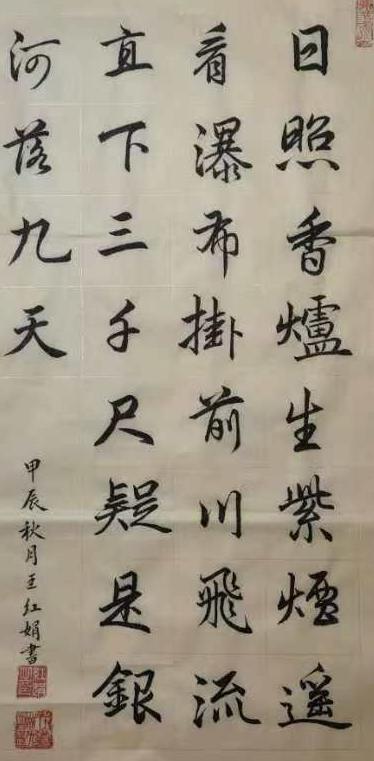 日照香爐生紫煙遥
看瀑布掛前川飛流
直下三千尺疑是銀
河落九天
甲辰秋月王红娟書